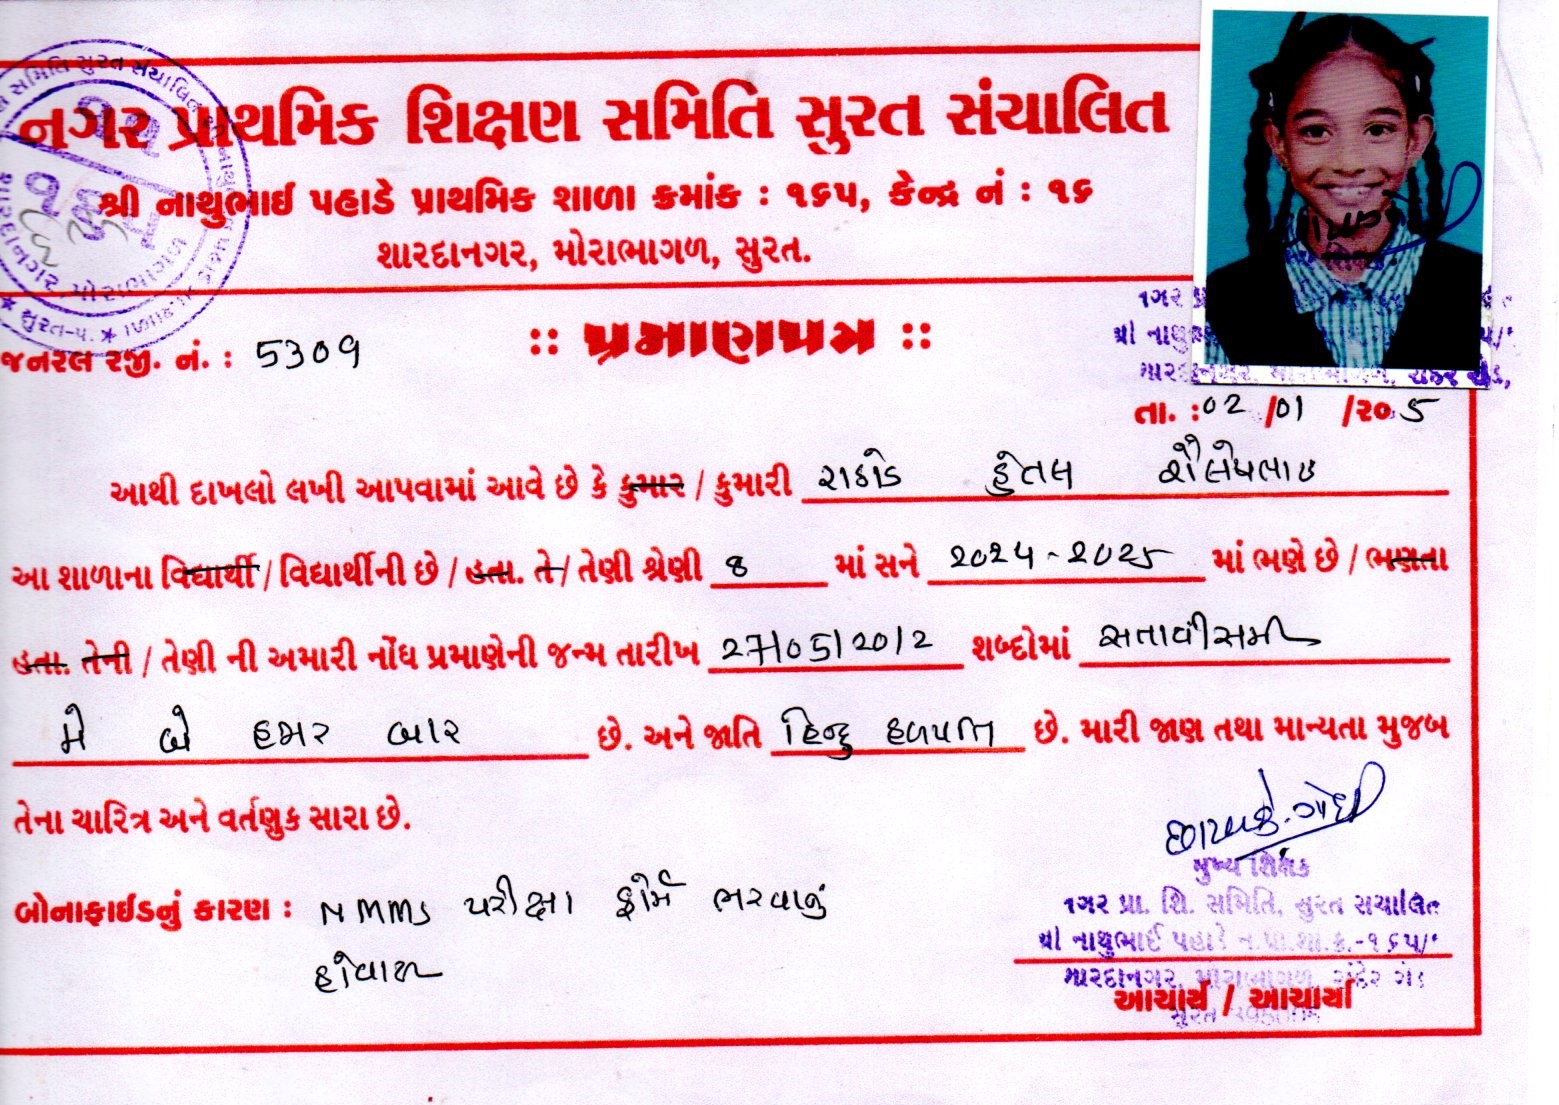 નગર પ્રાથમિક શિક્ષણ સમિતિ સુરત સંચાલિત
શ્રી નાથુભાઈ પહાડે પ્રાથમિક શાળા ક્રમાંક : ૧૬૫, કેન્દ્ર નં : ૧૬
શારદાનગર, મોરાભાગળ, સુરત.
જનરલ રજી. નં. : 5309
:: પ્રમાણપત્ર ::
તા. : 02 /01 /૨૦ 5
આથી દાખલો લખી આપવામાં આવે છે કે કુમાર / કુમારી રાઠોડ હેતલ શૈલેષભાઇ
આ શાળાના વિદ્યાર્થી / વિદ્યાર્થીની છે / હતા. તે / તેણી શ્રેણી 8 માં સને 2024-2025 માં ભણે છે / ભણતા
હતા. તેની / તેણી ની અમારી નોંધ પ્રમાણેની જન્મ તારીખ 27/05/2012 શબ્દોમાં સતાવીસમી
મે બે હજાર બાર છે. અને જાતિ હિન્દુ હળપતિ છે. મારી જાણ તથા માન્યતા મુજબ
તેના ચારિત્ર અને વર્તણુક સારા છે.
બોનાફાઈડનું કારણ : NMMS પરીક્ષા ફોર્મ ભરવાનું
હોવાથી
મુખ્ય શિક્ષક
નગર પ્રા. શિ. સમિતિ, સુરત સંચાલિત
શ્રી નાથુભાઈ પહાડે ન.પ્રા.શા.ક્ર.-૧૬૫
શારદાનગર, મોરાભાગળ, રાંદેર રોડ
આચાર્ય / આચાર્યા